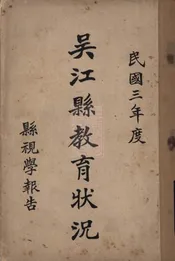 民國三年度
吴江縣教育狀况
縣視學報告